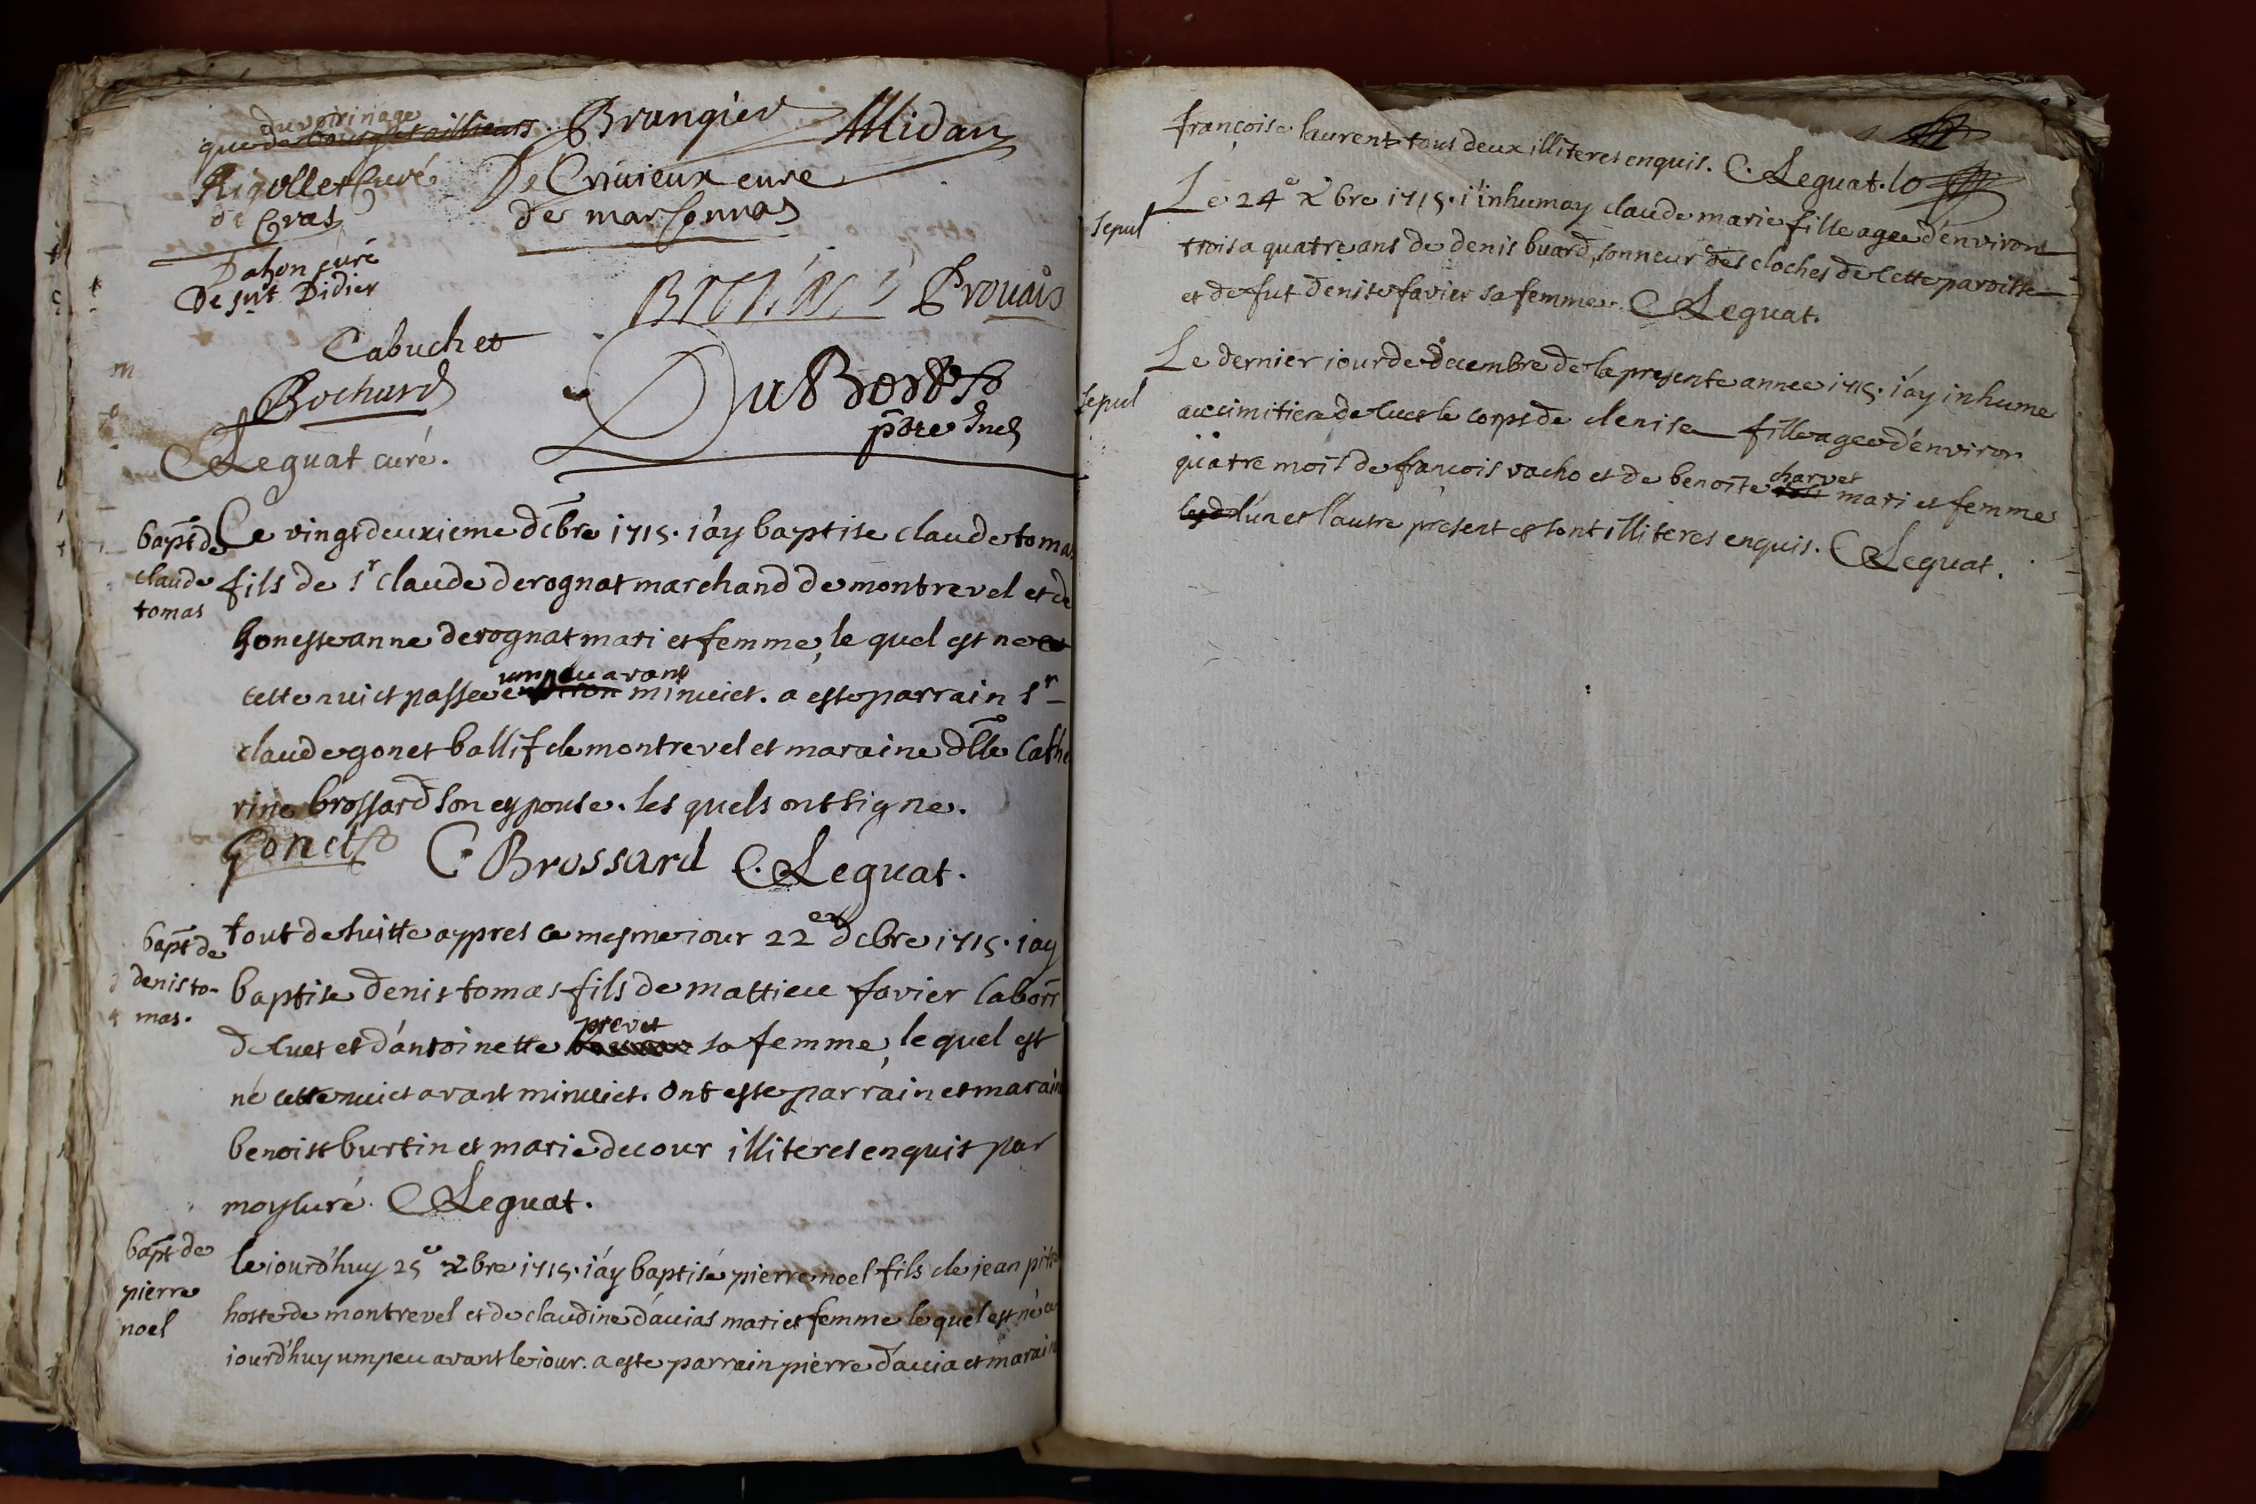 du voisinage
que Brangier Midan
Rigollet curé De Crivieux cure
de Cras de marsonnas
Dahon curé
De snt Didier
Prouais
Cabuchet
Bochard DuBost
pbre
C Leguat curé.
bapt de Ce vingt deuxieme decbre 1715. i'ay baptise claude tomas
claude fils de sr claude derognat marchand de montrevel et de
tomas honeste anne derognat mari et femme, le quel est ne
cette nuict passee um peu avant minuict. a este parrain sr
claude gonet ballif de montrevel et maraine dlle Cathe
rine brossard son espouse. les quels ont signe.
Gonet C Brossard C. Leguat.
bapt de tout de suitte appres ce mesme iour 22e decbre 1715. i'ay
denis to- baptise denis tomas fils de mattieu favier laborr
mas. de cuet et d'antoinette prevet sa femme, le quel est
né cette nuict avant minuict. Ont este parrain et marain
benoist burtin et marie decour illiteres enquis par
moy curé. C Leguat.
bapt de le iourd'huy 25e xbre 1715. i'ay baptisé pierre noel fils de jean
pierre hoste de montrevel et de claudine d'avias mari et femme le quel est né ce
noel iourd'huy um peu avant le iour. a este parrain pierre d'avia et marain
françoise laurent tous deux illiteres enquis. C. Leguat.
sepul Le 24e xbre 1715. i'inhumay claude marie fille agee d'environ
trois a quatre ans de denis buard, sonneur des cloches de cette paroisse
et de fut denise favier sa femme. C Leguat.
sepul Le dernier iour de decembre de la presente annee 1715. i'ay inhume
au cimitiere de cuet le corps de denise fille agee d'environ
quatre mois de françois vacho et de benoite charvet mari et femme
l'un et l'autre present et sont illiteres enquis. C Leguat.